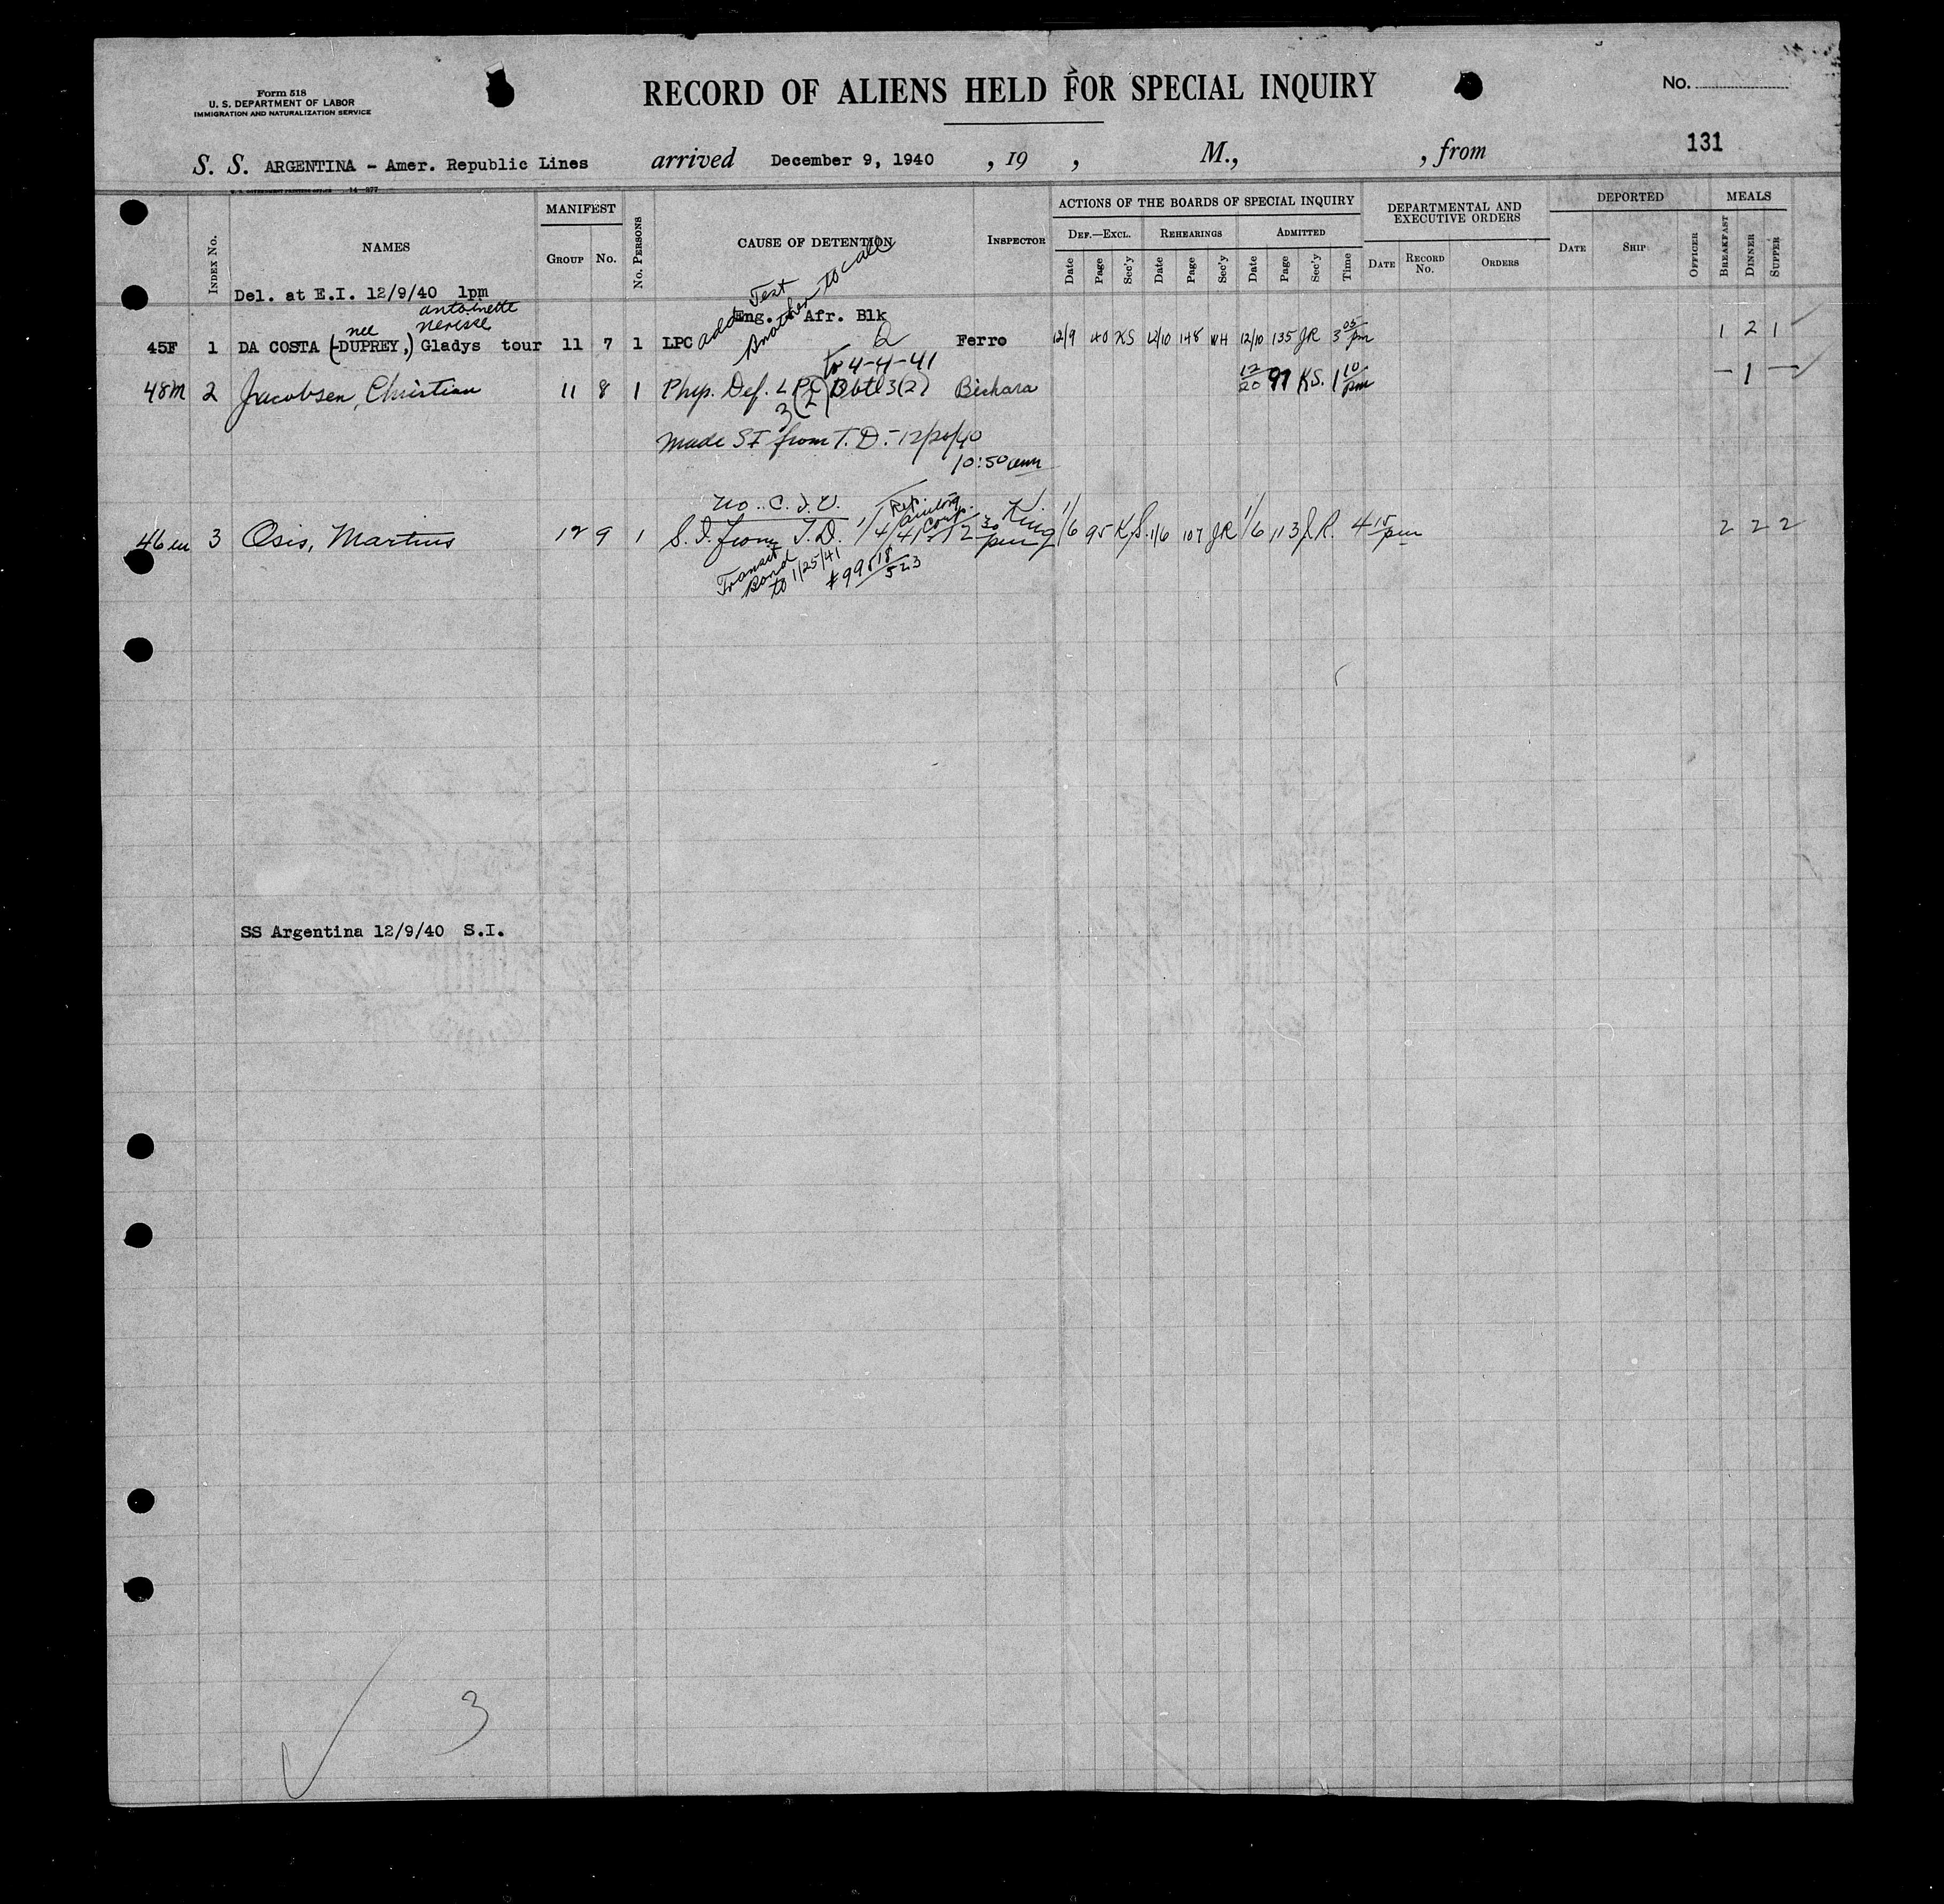 Form 518
U. S. DEPARTMENT OF LABOR
IMMIGRATION AND NATURALIZATION SERVICE
RECORD OF ALIENS HELD FOR SPECIAL INQUIRY
No.
131
S. S. ARGENTINA - Amer. Republic Lines arrived December 9, 1940 , 19 , M., , from
14-277
INDEX No.
NAMES
MANIFEST
GROUP No.
No. PERSONS
CAUSE OF DETENTION
INSPECTOR
ACTIONS OF THE BOARDS OF SPECIAL INQUIRY
DEF.—EXCL. REHEARINGS ADMITTED
Date Page Sec'y Date Page Sec'y Date Page Sec'y Time
DEPARTMENTAL AND
EXECUTIVE ORDERS
DATE RECORD No. ORDERS
DEPORTED
DATE SHIP OFFICER
MEALS
BREAKFAST DINNER SUPPER
Del. at E.I. 12/9/40 1pm
antoinette
nee nerisse
add Test
Another to call
Eng. Afr. Blk
45F 1 DA COSTA (-DUPREY,) Gladys tour 11 7 1 LPC Ferro 12/9 40 KS 12/10 148 WH 12/10 135 JR 3 05 pm 1 2 1
to 4-4-41
48m 2 Jacobsen, Christian 11 8 1 Phys. Def. L P C 3(2) Bichara 12/20 97 KS. 1 10 pm - 1 -
made SI from T.D. - 12/20/40
10:50 am
no. C.I.V.
46m 3 Osis, Martins 12 9 1 S.I. from T.D. 1/4/41 12 30 pm King 1/6 95 KS. 1/6 107 JR 1/6 113 J.R. 4 15 pm 2 2 2
Transit
Bond
to 1/25/41
#99518/523
SS Argentina 12/9/40 S.I.
3